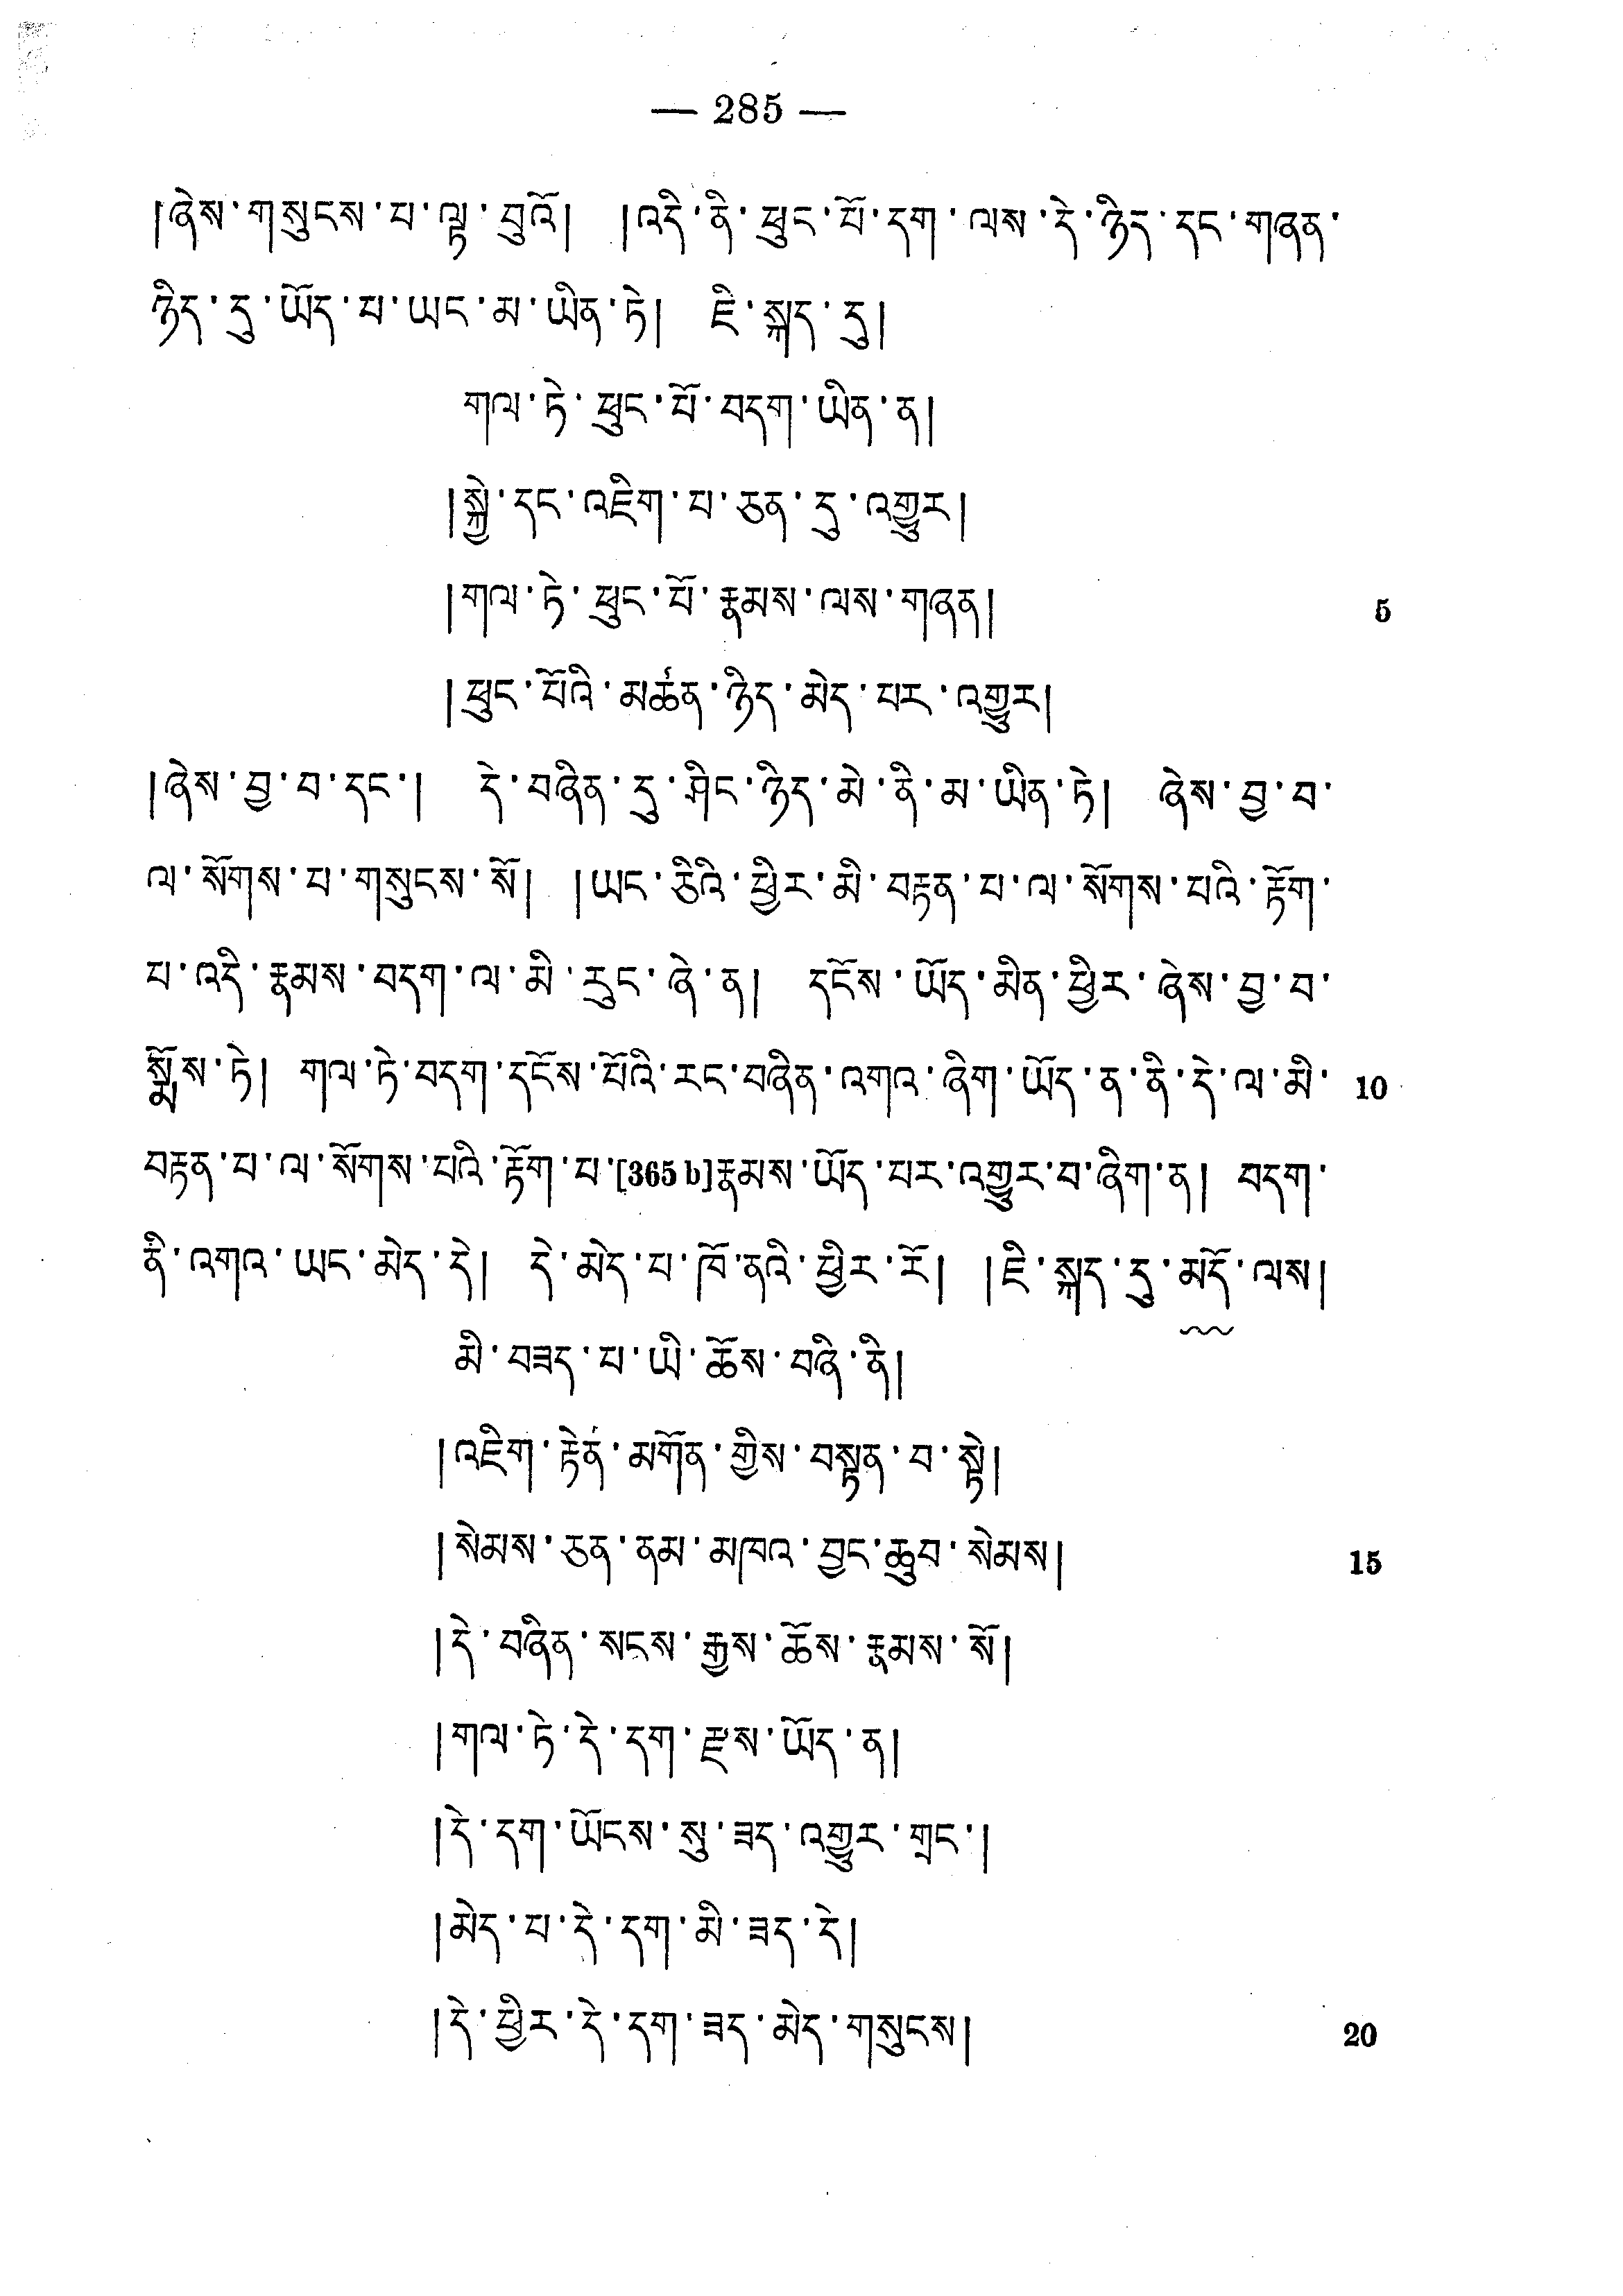 — 285 —
།ཞེས་གསུངས་པ་ལྟ་བུའོ། །འདི་ནི་ཕུང་པོ་དག་ལས་དེ་ཉིད་དང་གཞན་
ཉིད་དུ་ཡོད་པ་ཡང་མ་ཡིན་ཏེ། ཇི་སྐད་དུ།
གལ་ཏེ་ཕུང་པོ་བདག་ཡིན་ན།
།སྐྱེ་དང་འཇིག་པ་ཅན་དུ་འགྱུར།
།གལ་ཏེ་ཕུང་པོ་རྣམས་ལས་གཞན། 5
།ཕུང་པོའི་མཚན་ཉིད་མེད་པར་འགྱུར།
།ཞེས་བྱ་བ་དང་། དེ་བཞིན་དུ་ཤིང་ཉིད་མེ་ནི་མ་ཡིན་ཏེ། ཞེས་བྱ་བ་
ལ་སོགས་པ་གསུངས་སོ། །ཡང་ཅིའི་ཕྱིར་མི་བརྟན་པ་ལ་སོགས་པའི་རྟོག་
པ་འདི་རྣམས་བདག་ལ་མི་རུང་ཞེ་ན། དངོས་ཡོད་མིན་ཕྱིར་ཞེས་བྱ་བ་
སྨོས་ཏེ། གལ་ཏེ་བདག་དངོས་པོའི་རང་བཞིན་འགའ་ཞིག་ཡོད་ན་ནི་དེ་ལ་མི་ 10
བརྟན་པ་ལ་སོགས་པའི་རྟོག་པ་[365 b]རྣམས་ཡོད་པར་འགྱུར་བ་ཞིག་ན། བདག་
ནི་འགའ་ཡང་མེད་དེ། དེ་མེད་པ་ཁོ་ནའི་ཕྱིར་རོ། །ཇི་སྐད་དུ་མདོ་ལས།
མི་བཟད་པ་ཡི་ཆོས་བཞི་ནི།
།འཇིག་རྟེན་མགོན་གྱིས་བསྟན་བ་སྟེ།
།སེམས་ཅན་ནམ་མཁའ་བྱང་ཆུབ་སེམས། 15
།དེ་བཞིན་སངས་རྒྱས་ཆོས་རྣམས་སོ།
།གལ་ཏེ་དེ་དག་རྫས་ཡོད་ན།
།དེ་དག་ཡོངས་སུ་ཟད་འགྱུར་གྲང་།
།མེད་པ་དེ་དག་མི་ཟད་དེ།
།དེ་ཕྱིར་དེ་དག་ཟད་མེད་གསུངས། 20